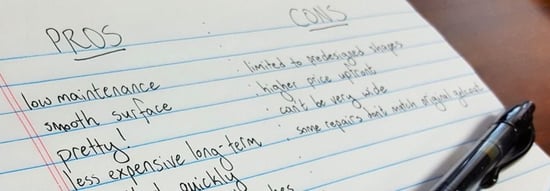 PROS
CONS
low maintenance
smooth surface
pretty!
less expensive long-term
quickly
: limited to predesigned shapes
: higher price upfront
: can't be very wide
: some repairs don't match original